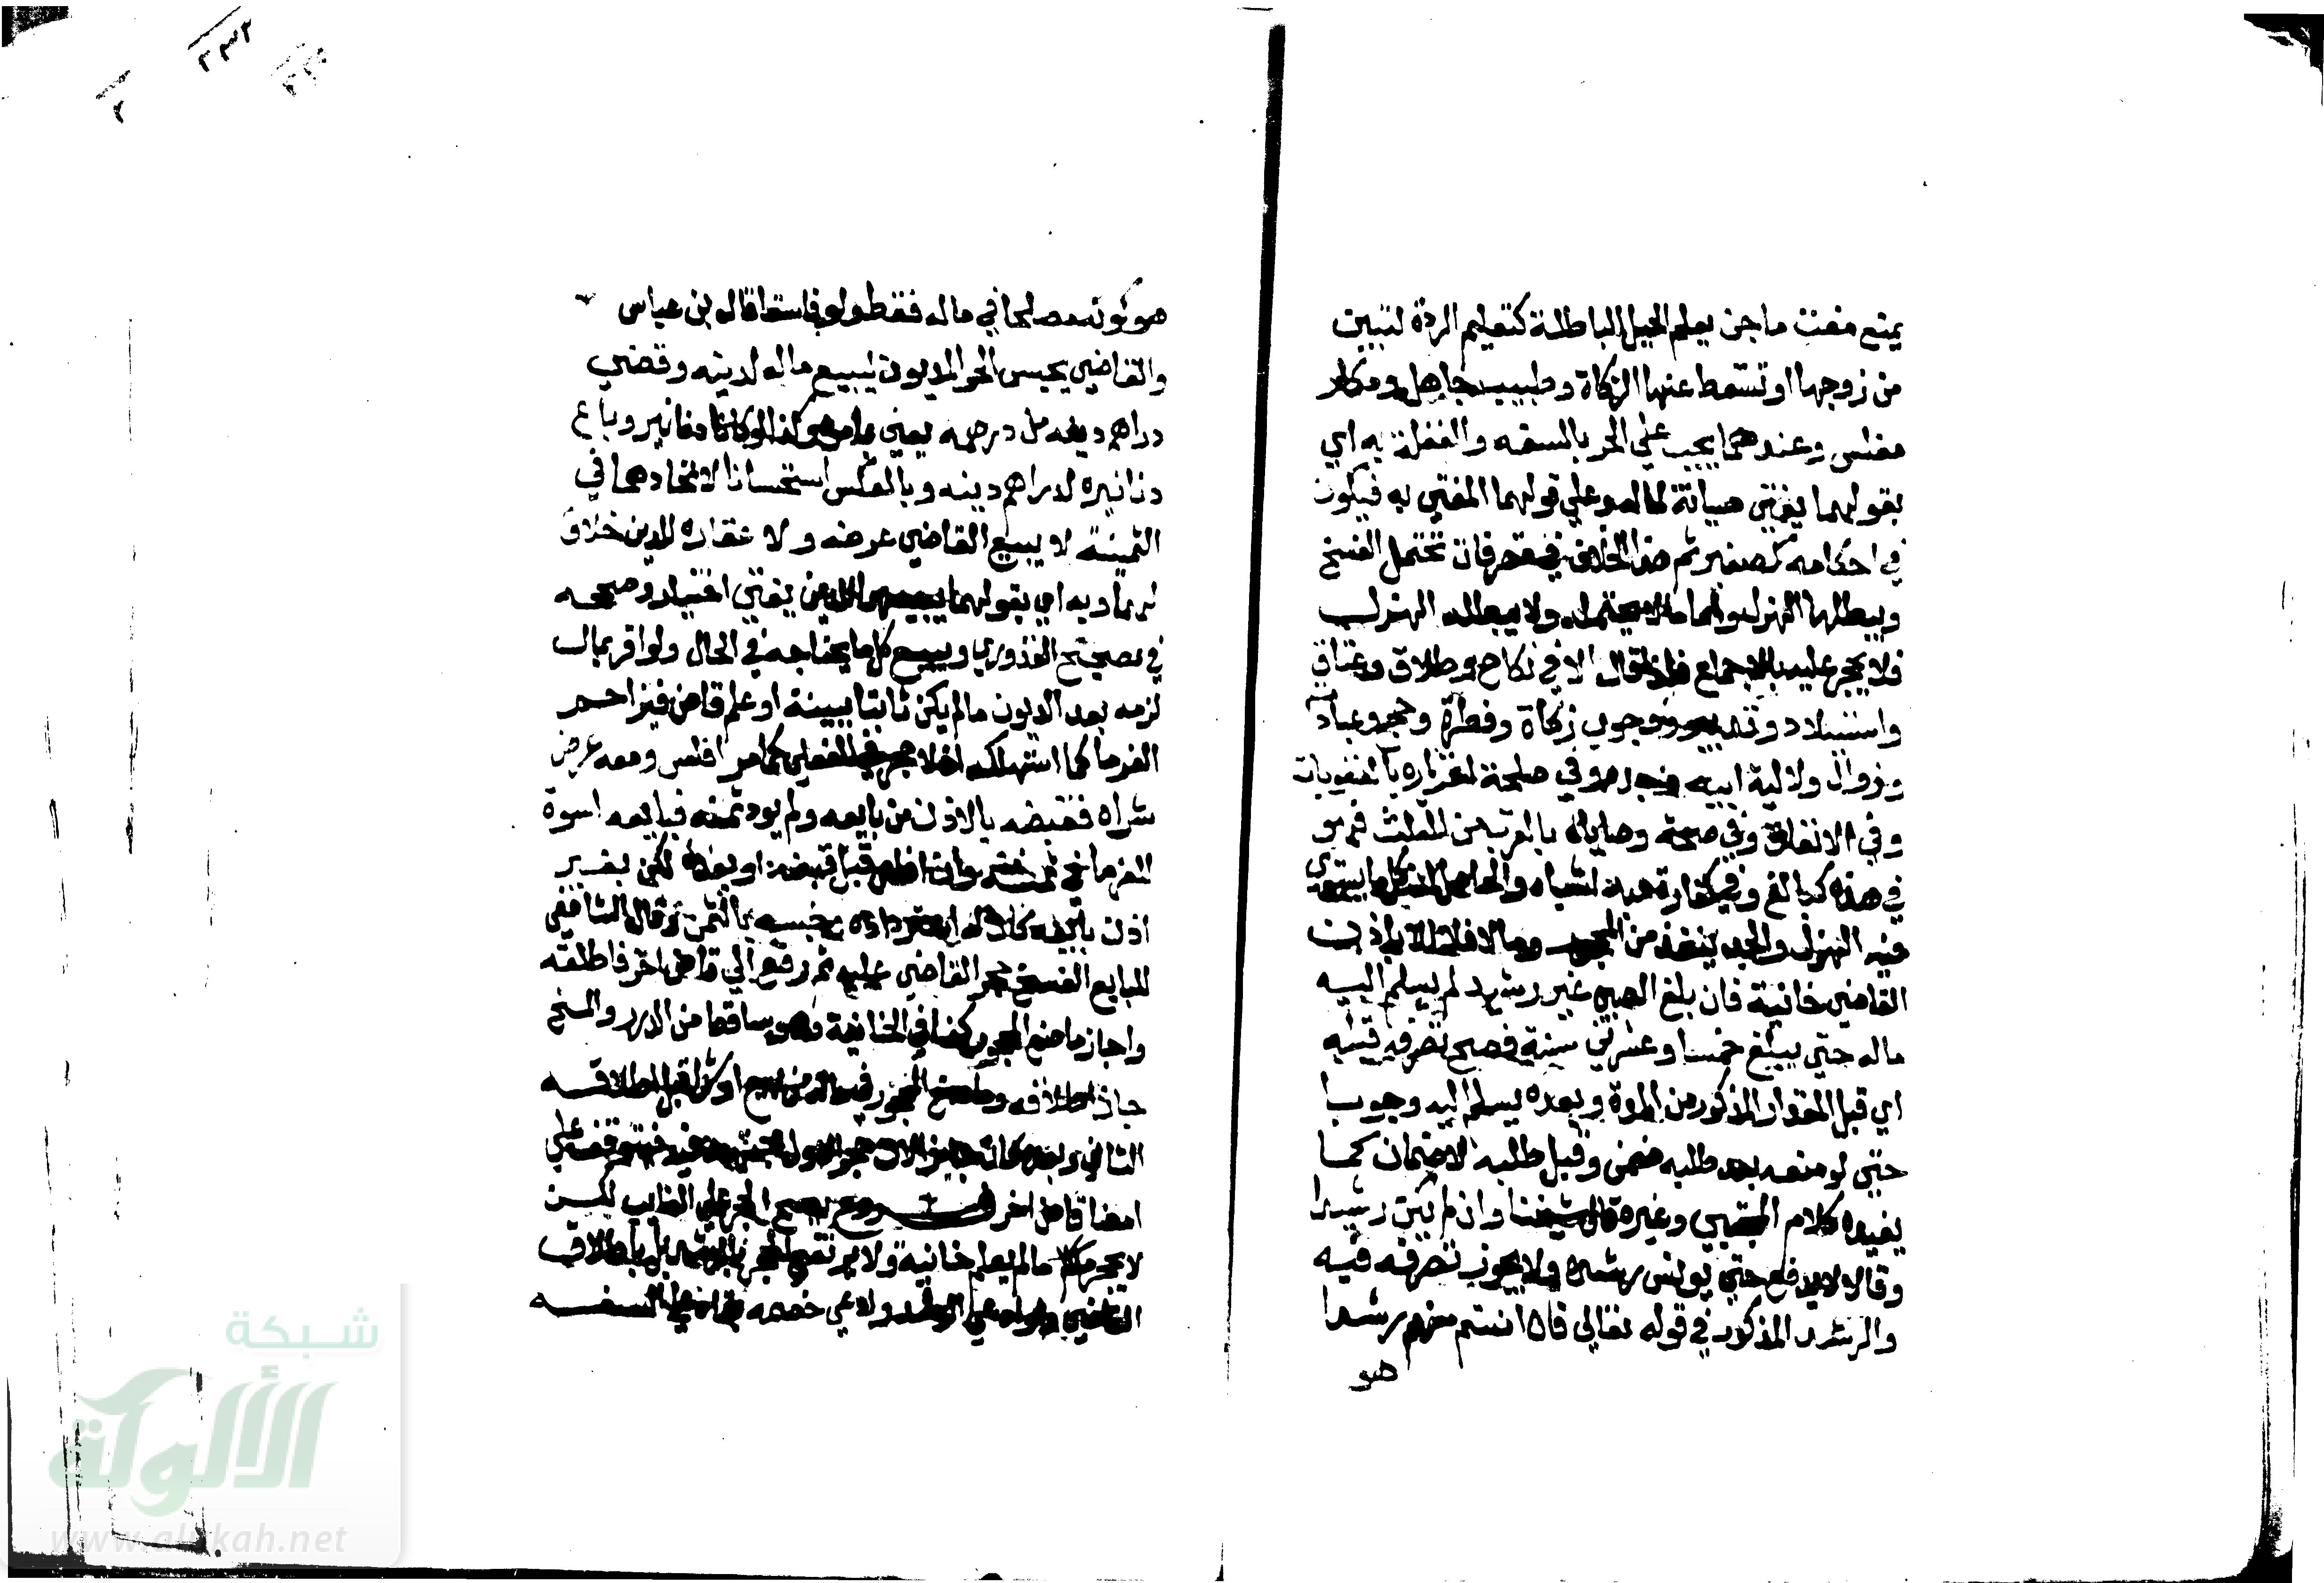 يمنع مفت ماجن يعلم الحيل الباطلة كتعليم الردة لتبين
من زوجها او تسقط عنها الزكاة وطبيب جاهل ومكار
مفلس وعندهما يحجر علي الحر بالسفه والغفلة به اي
بقولهما يفتي صيانة لماله وعلي قولهما المفتي به فيكون
في احكامه كصغير ثم هذا الخلاف في تصرفات تحتمل الفسخ
ويبطلها الهزل واما ما لا يحتمله ولا يبطله الهزل
فلا يحجر عليه بالاجماع فلذا قال الا في نكاح وطلاق وعتاق
واستيلاد وتدبير ووجوب زكاة وفطرة وحج وعبادات
وزوال ولاية ابيه وجده وفي صحة اقراره بالعقوبات
وفي الانفاق وفي صحة وصاياه بالقرب من الثلث فهو
في هذه كبالغ وفي كفارة عبد اشباه والحاصل ان كل ما يستوي
فيه الهزل والجد ينفذ من المحجور وما لا فلا الا باذن
القاضي خانية فان بلغ الصبي غير رشيد لم يسلم اليه
ماله حتي يبلغ خمسا وعشرين سنة فصح تصرفه قبله
اي قبل المقدار المذكور من المدة وبعده يسلم اليه وجوبا
حتي لو منعه بعد طلبه ضمن وقبل طلبه لا ضمان كما
يفيده كلام المجتبي وغيره قال شيخنا وان لم يكن رشيدا
وقالا لا يدفع حتي يونس رشده ولا يجوز تصرفه فيه
والرشد المذكور في قوله تعالي فان انستم منهم رشدا
هو
هو كونه مصلحا في ماله فقط ولو فاسقا قاله بن عباس
والقاضي يحبس الحر المديون ليبيع ماله لدينه وقضي
دراهم دينه من دراهمه يعني بلا امره وكذا لو كانا دنانير وباع
دنانيره لدراهم دينه وبالعكس استحسانا لاتحادهما في
الثمنية لا يبيع القاضي عرضه ولا عقاره للدين خلافا
لهما وبه اي بقولهما يبيعهما للدين يفتي اختيار وصححه
في تصحيح القدوري ويبيع كل ما لا يحتاجه في الحال ولو اقر بمال
لزمه بعد الديون ما لم يكن ثابتا ببينة او علم قاض فيزاحم
الغرما كما استهلكه اذ لا حجر في الفعل كما مر افلس ومعه عرض
شراه فقبضه بالاذن من بايعه ولم يود ثمنه فبايعه اسوة
للغرما في ثمنه وان افلس قبل قبضه او بعده لكن بغير
اذن بايعه كان له استرداده وحبسه بالثمن وقال الشافعي
للبايع الفسخ حجر القاضي عليه ثم رفع الي قاض اخر فاطلقه
واجاز ما صنع المحجور كذا في الخانية وهو ساقط من الدرر والمنح
جاز اطلاقه وما صنع المحجور في ماله من بيع او شرا قبل اطلاقه
الثاني وبعده كان جايزا لان حجر الاول مجتهد فيه فيتوقف علي
امضا قاض اخر فروع يصح الحجر علي الغايب لكن
لا ينحجر ما لم يعلم خانية ولا يرتفع الحجر بالرشد بل باطلاق
القاضي ولو ادعي الرشد وادعي خصمه بقاه علي السفه
شبكة
الألوكة
www.alukah.net